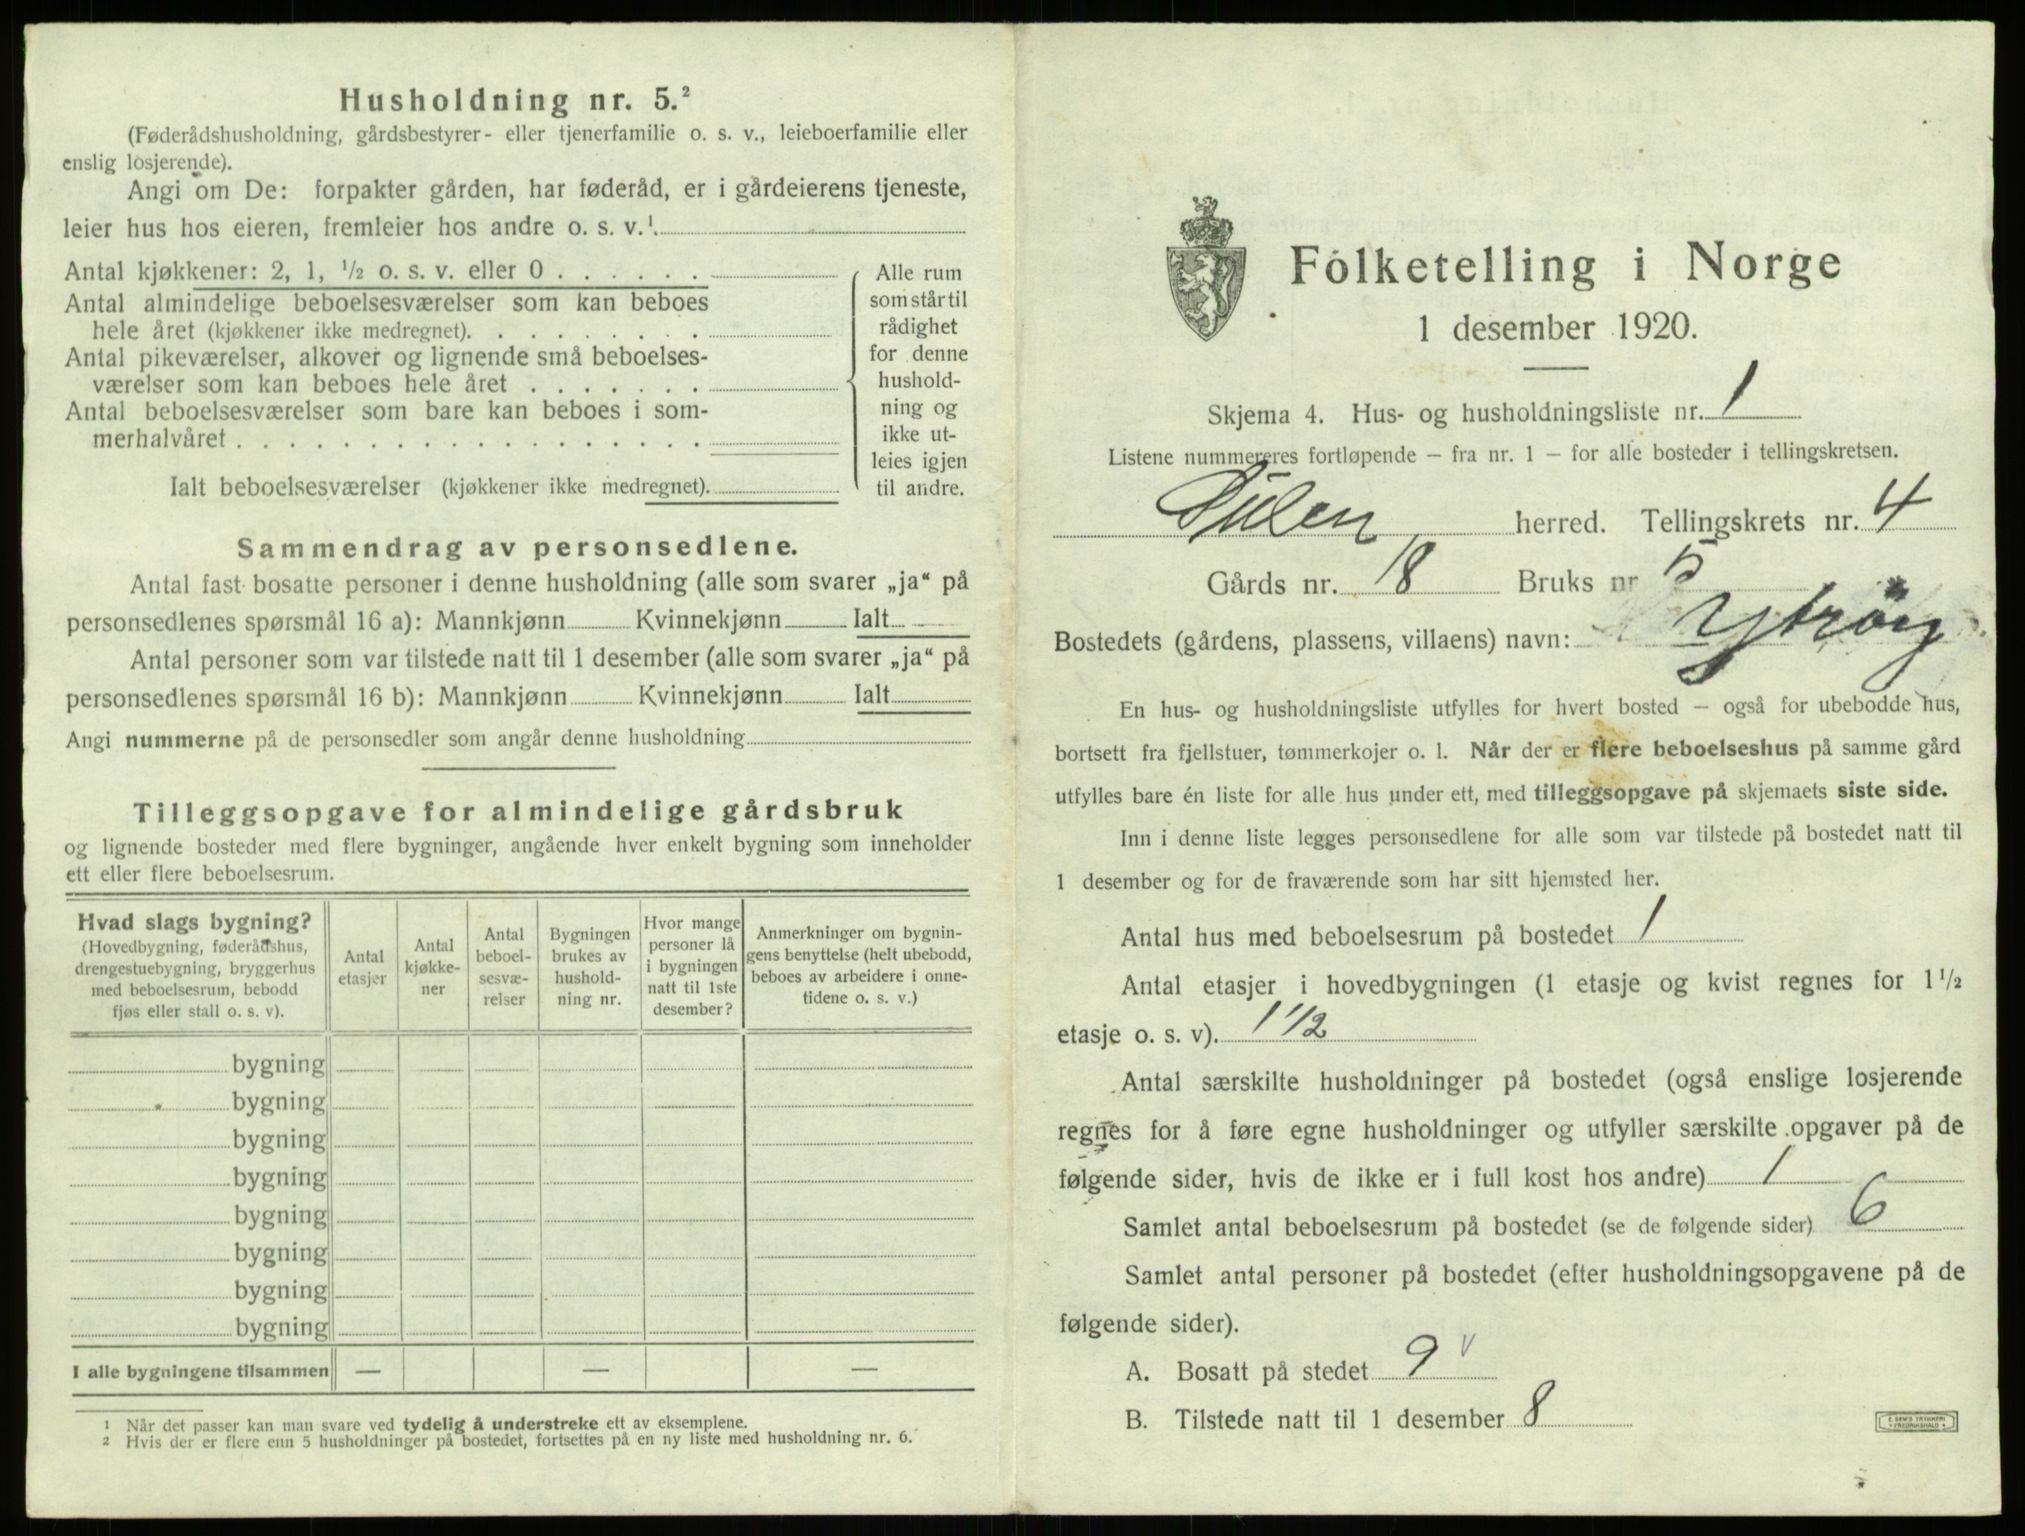 Husholdning nr. 5.²
(Føderådshusholdning, gårdsbestyrer- eller tjenerfamilie o. s. v., leieboerfamilie eller
enslig losjerende).
Angi om De: forpakter gården, har føderåd, er i gårdeierens tjeneste,
leier hus hos eieren, fremleier hos andre o. s. v.¹.
Antal kjøkkener: 2, 1, ½ o. s. v. eller 0 . . . . . .
Antal almindelige beboelsesværelser som kan beboes
hele året (kjøkkener ikke medregnet). . . . . . . . .
Antal pikeværelser, alkover og lignende små beboelses-
værelser som kan beboes hele året . . . . . . .
Antal beboelsesværelser som bare kan beboes i som-
merhalvåret . . . . . . . . . . . . . . . . . .
Ialt beboelsesværelser (kjøkkener ikke medregnet).
Alle rum
som står til
rådighet
for denne
hushold-
ning og
ikke ut-
leies igjen
til andre.
Sammendrag av personsedlene.
Antal fast bosatte personer i denne husholdning (alle som svarer „ja“ på
personsedlenes spørsmål 16 a): Mannkjønn Kvinnekjønn Ialt
Antal personer som var tilstede natt til 1 desember (alle som svarer „ja“ på
personsedlenes spørsmål 16 b): Mannkjønn Kvinnekjønn Ialt
Angi nummerne på de personsedler som angår denne husholdning
Tilleggsopgave for almindelige gårdsbruk
og lignende bosteder med flere bygninger, angående hver enkelt bygning som inneholder
ett eller flere beboelsesrum.
Hvad slags bygning?
(Hovedbygning, føderådshus,
drengestuebygning, bryggerhus
med beboelsesrum, bebodd
fjøs eller stall o. s. v).
Antal
etasjer
Antal
kjøkke-
ner
Antal
beboel-
sesvæ-
relser
Bygningen
brukes av
hushold-
ning nr.
Hvor mange
personer lå
i bygningen
natt til 1ste
desember?
Anmerkninger om bygnin-
gens benyttelse (helt ubebodd,
beboes av arbeidere i onne-
tidene o. s. v.)
bygning
bygning
bygning
bygning
bygning
bygning
bygning
bygning
I alle bygningene tilsammen — — —
¹ Når det passer kan man svare ved tydelig å understreke ett av eksemplene.
² Hvis der er flere enn 5 husholdninger på bostedet, fortsettes på en ny liste med husholdning nr. 6.
Folketelling i Norge
1 desember 1920.
Skjema 4. Hus- og husholdningsliste nr. 1
Listene nummereres fortløpende – fra nr. 1 – for alle bosteder i tellingskretsen.
herred. Tellingskrets nr. 4
Gårds nr. 18 Bruks nr 5
Bostedets (gårdens, plassens, villaens) navn: Ytröy
En hus- og husholdningsliste utfylles for hvert bosted – også for ubebodde hus,
bortsett fra fjellstuer, tømmerkojer o. l. Når der er flere beboelseshus på samme gård
utfylles bare én liste for alle hus under ett, med tilleggsopgave på skjemaets siste side.
Inn i denne liste legges personsedlene for alle som var tilstede på bostedet natt til
1 desember og for de fraværende som har sitt hjemsted her.
Antal hus med beboelsesrum på bostedet 1
Antal etasjer i hovedbygningen (1 etasje og kvist regnes for 1½
etasje o. s. v). 1 1/2
Antal særskilte husholdninger på bostedet (også enslige losjerende
regnes for å føre egne husholdninger og utfyller særskilte opgaver på de
følgende sider, hvis de ikke er i full kost hos andre) 1
Samlet antal beboelsesrum på bostedet (se de følgende sider) 6
Samlet antal personer på bostedet (efter husholdningsopgavene på de
følgende sider).
A. Bosatt på stedet 9 v
B. Tilstede natt til 1 desember 8
E. SEM'S TRYKKERI
FREDRIKSHALD